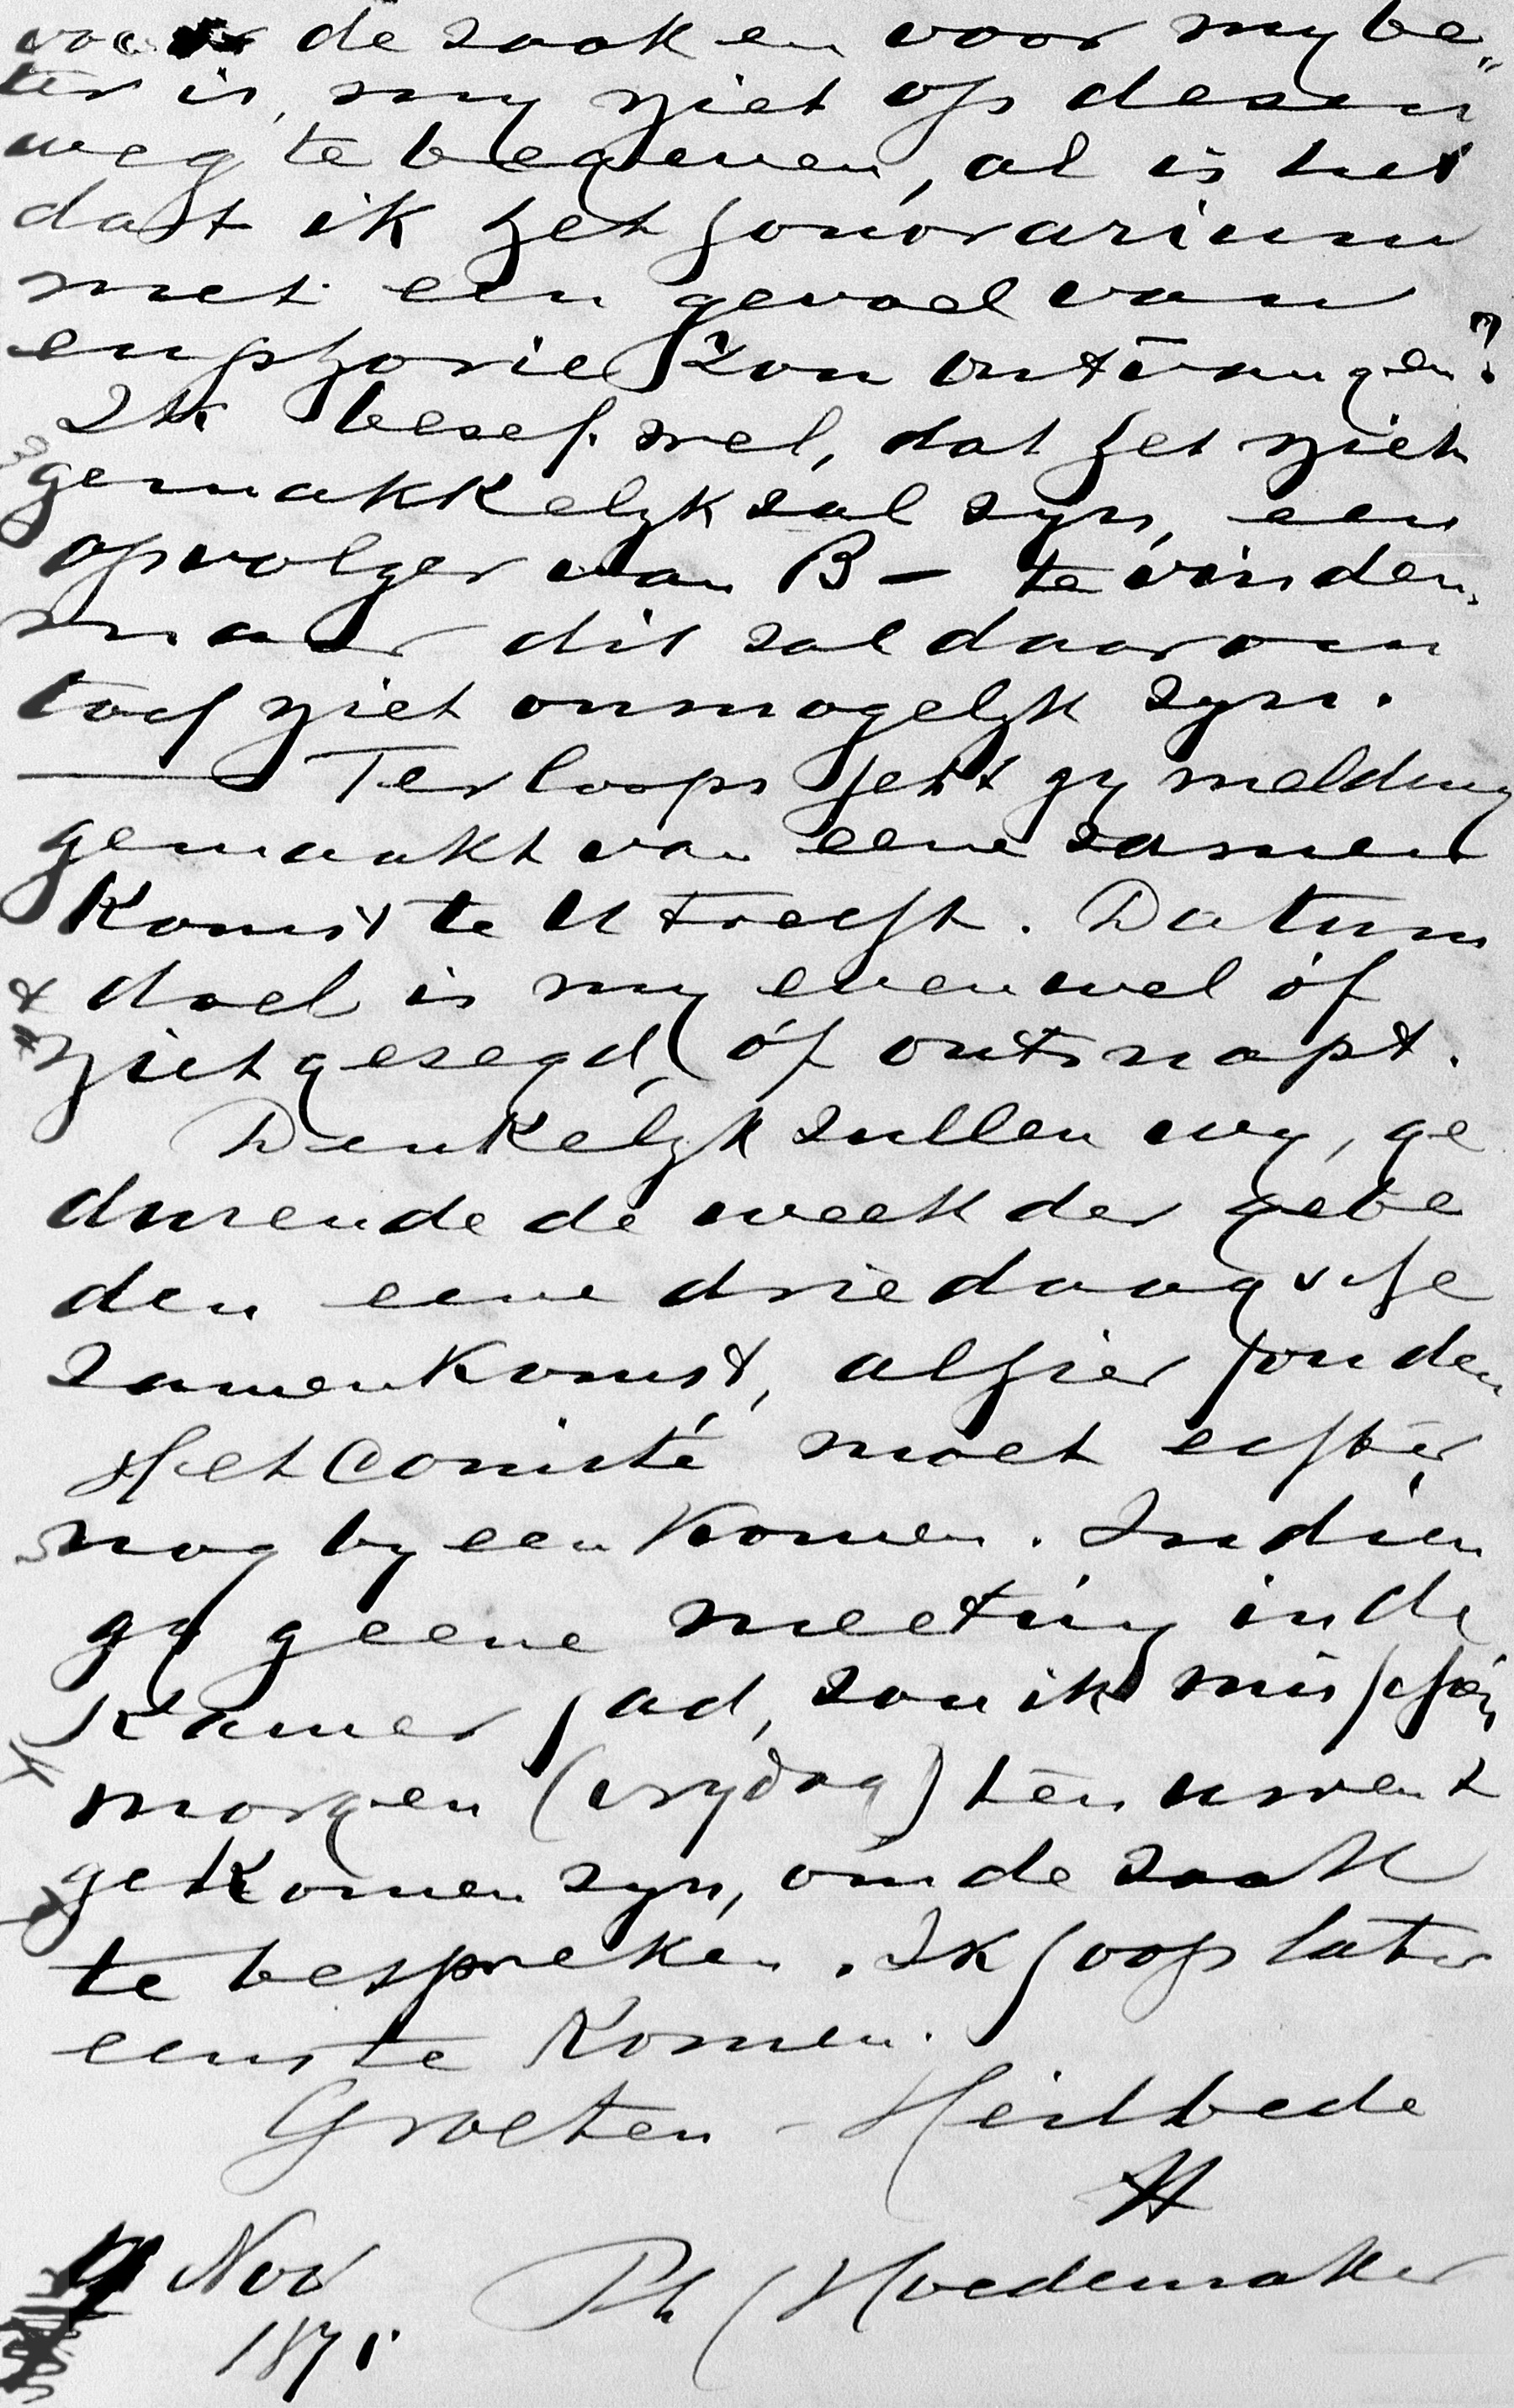 voor de zaak en voor my be„
ter is, my niet op dezen
weg te begeven, al is het
dat ik het honorarium
met een gevoel van
euphorie kon ontvangen?
Ik besef wel, dat het niet
gemakkelyk zal zyn, een
opvolger van B— te vinden,
maar dit zal daarom
toch niet onmogelyk zyn.
— Terloops hebt gy melding
gemaakt van eene zamen
komst te Utrecht. Datum
& doel is my evenwel óf
niet gezegd, óf ontsnapt.
Denkelyk zullen wy, ge
durende de week der gebe
den eene driedaagsche
zamenkomst, alhier houden
Het Comité moet echter
nog byeenkomen. Indien
gy geene meeting in de
Kamer had, zou ik misschien
morgen (vrydag) ten uwent
gekomen zyn, om de zaak
te bespreken. Ik hoop later
eens te komen.
Groeten - Heilbede
H
9 Nov Ph Hoedemaker
1871